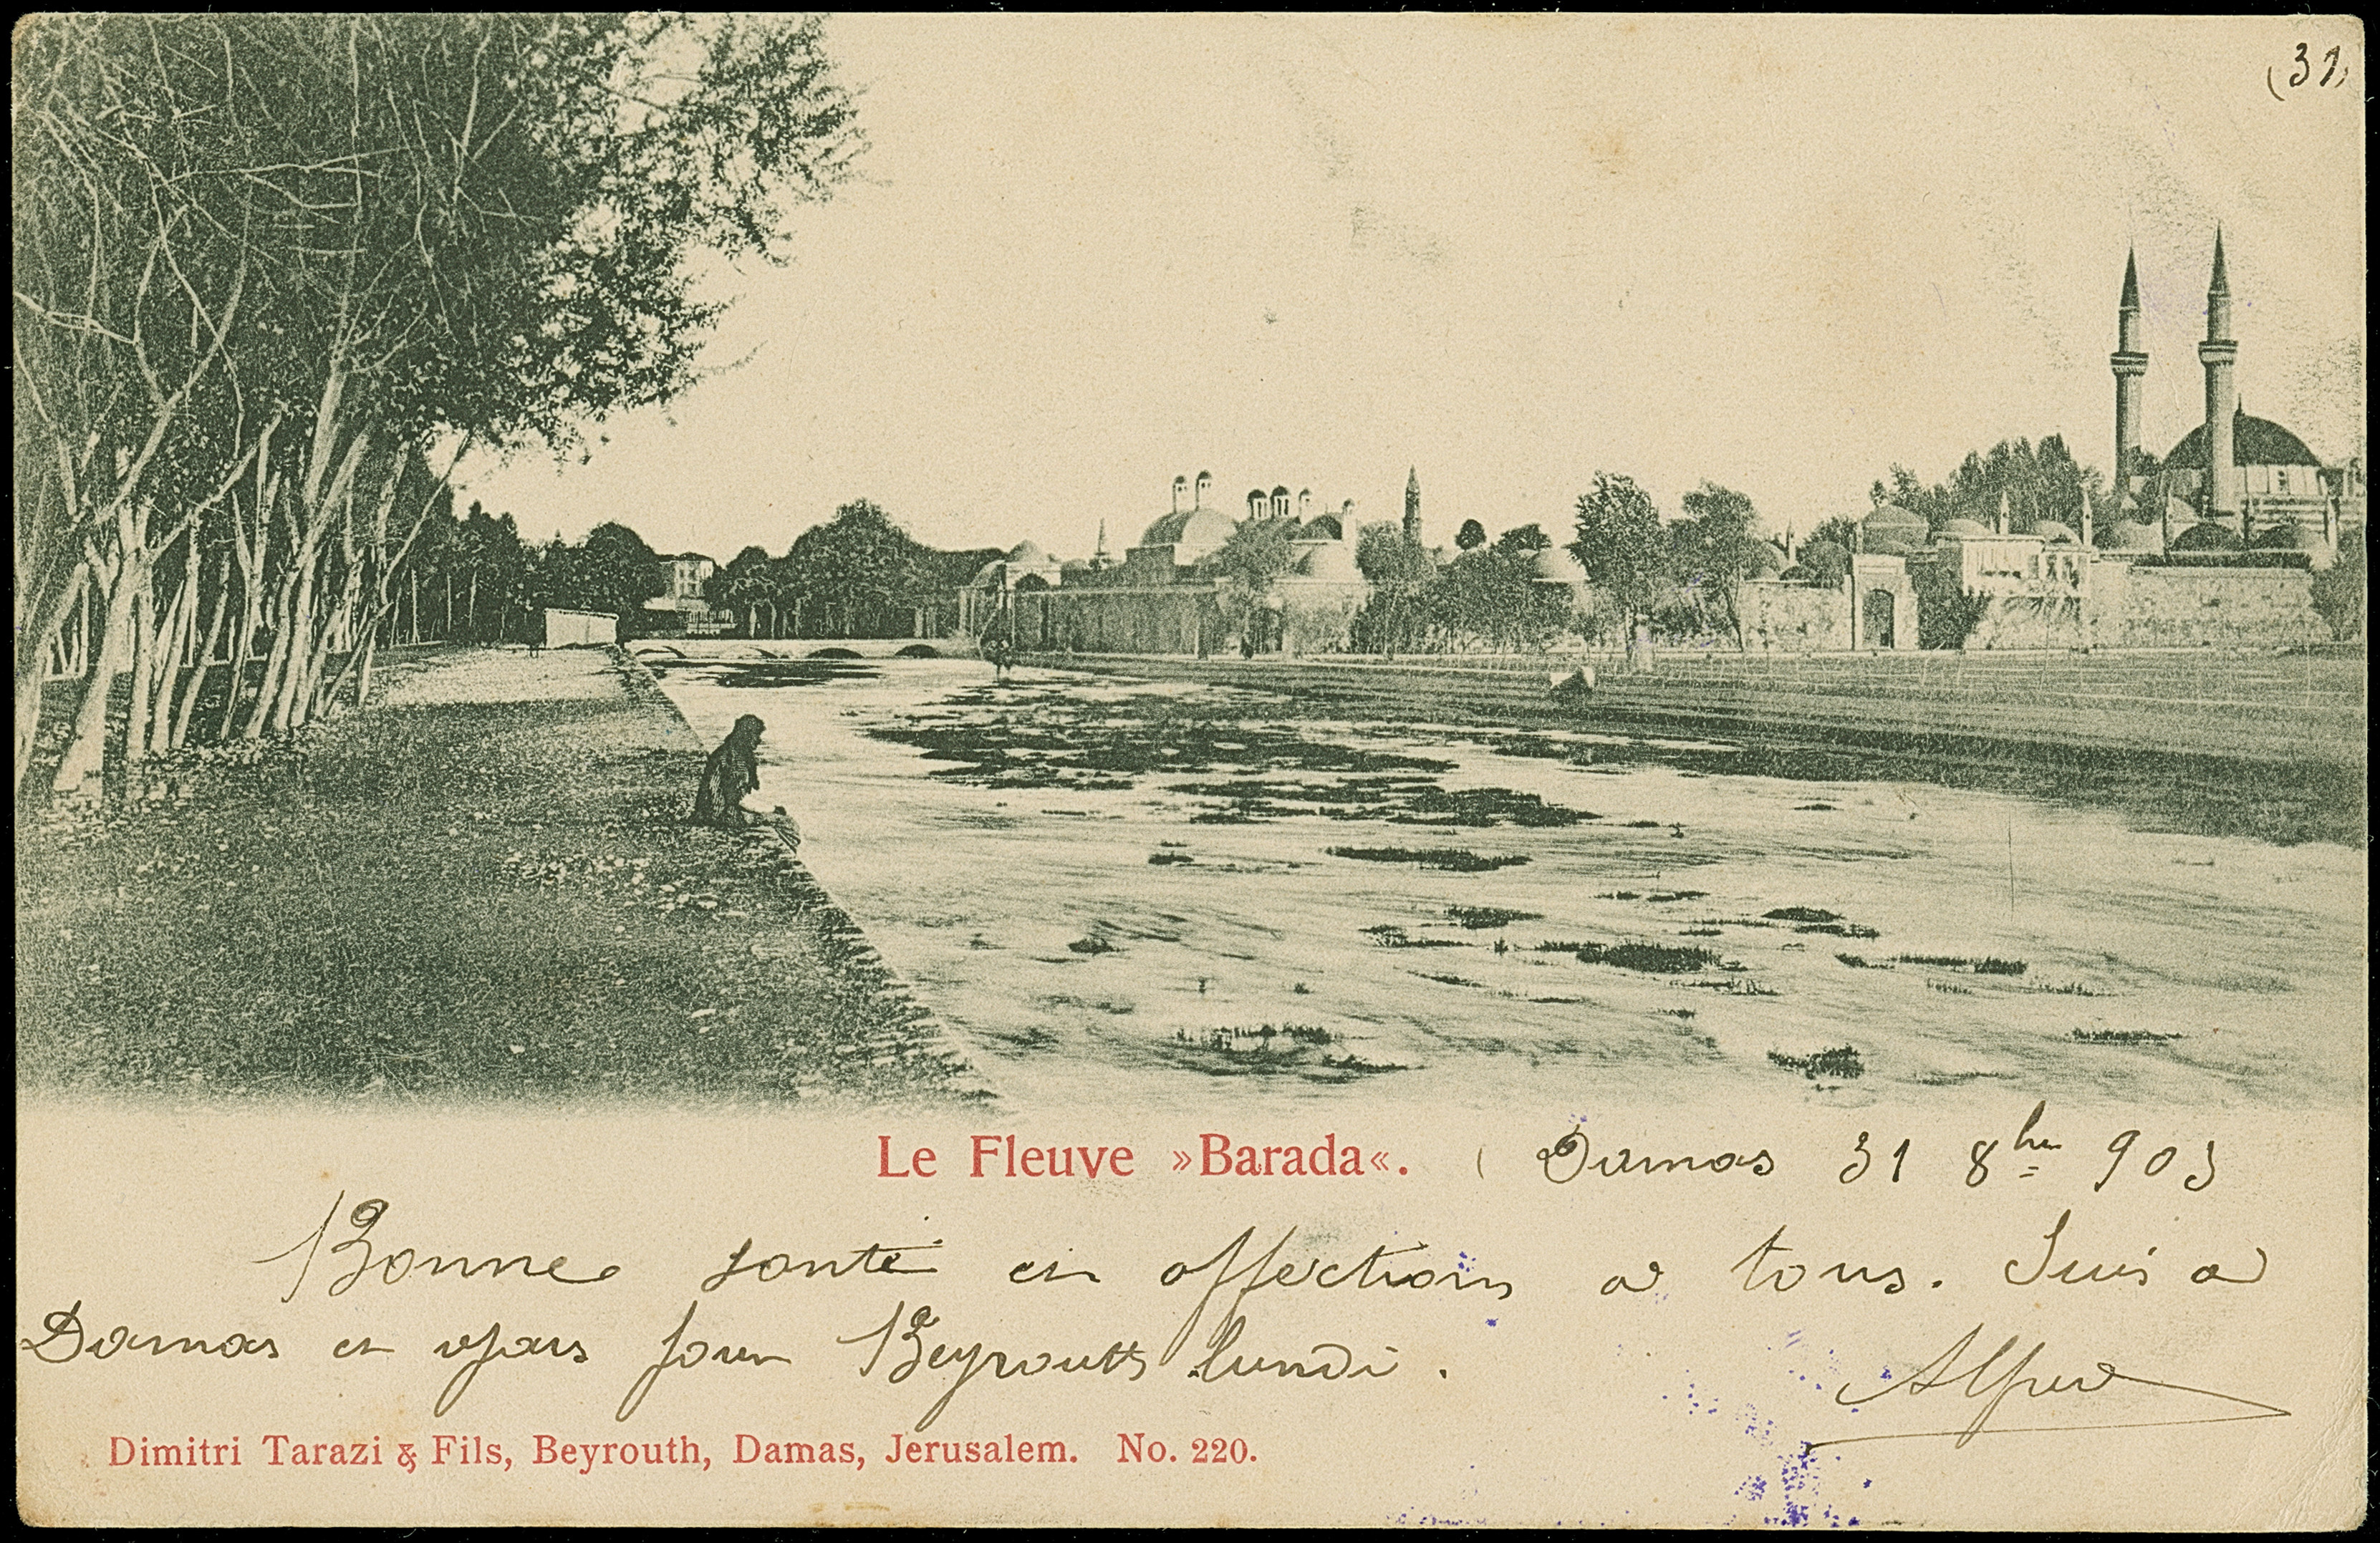 (31)
Le Fleuve »Barada«.
( Damas 31 8bre 903
Bonne santé et affections à tous. Suis à
Damas et pars pour Beyrouth lundi.
Alfred
Dimitri Tarazi & Fils, Beyrouth, Damas, Jerusalem. No. 220.